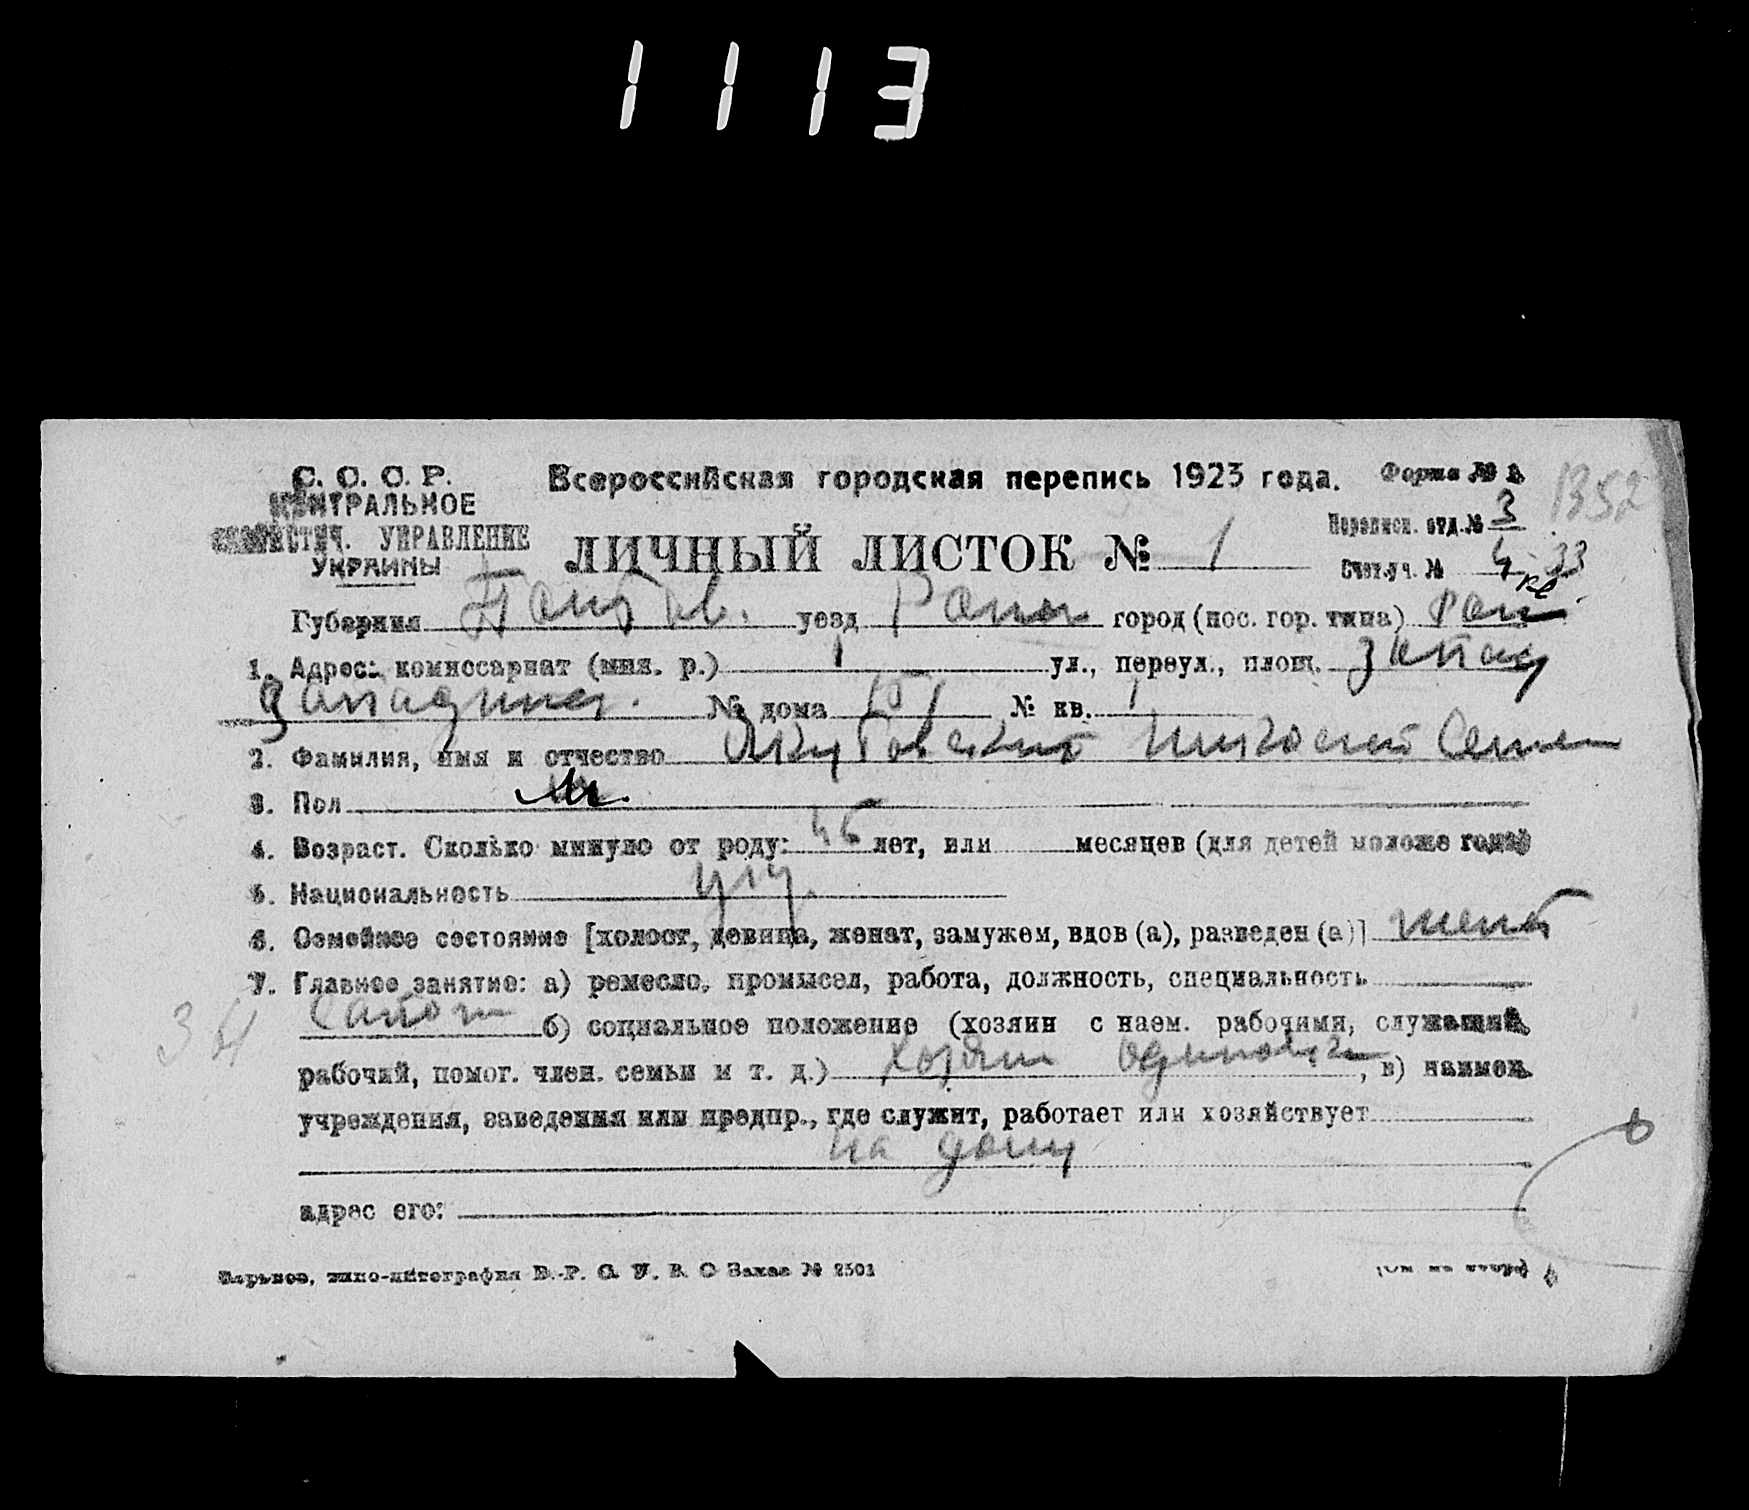 1113
С. С. С. Р.
ЦЕНТРАЛЬНОЕ
СТАТИСТИЧ. УПРАВЛЕНИЕ
УКРАИНЫ
Всероссийская городская перепись 1923 года.
Форма № 1
1352
ЛИЧНЫЙ ЛИСТОК № 1
Переписн. отд. № 3
Счет. уч. № 4 33
Губерния уезд город (пос. гор. типа)
1. Адрес: комиссариат (мил. р.) 1 ул., переул., площ. Запад
Западная. № дома № кв. 1
2. Фамилия, имя и отчество Якубовский Николай Семен
3. Пол М.
4. Возраст. Сколько минуло от роду: лет, или месяцев (для детей моложе года)
5. Национальность укр.
6. Семейное состояние [холост, девица, женат, замужем, вдов (а), разведен (а)] женат
7. Главное занятие: а) ремесло, промысел, работа, должность, специальность
Сапож б) социальное положение (хозяин с наем. рабочими, служащий,
рабочий, помог. член. семьи и т. д.) хозяин одиночка, в) наимен.
учреждения, заведения или предпр., где служит, работает или хозяйствует
на дому
адрес его:
Харьков, типо-литография В.-Р. С. У. В. О Заказ № 2501